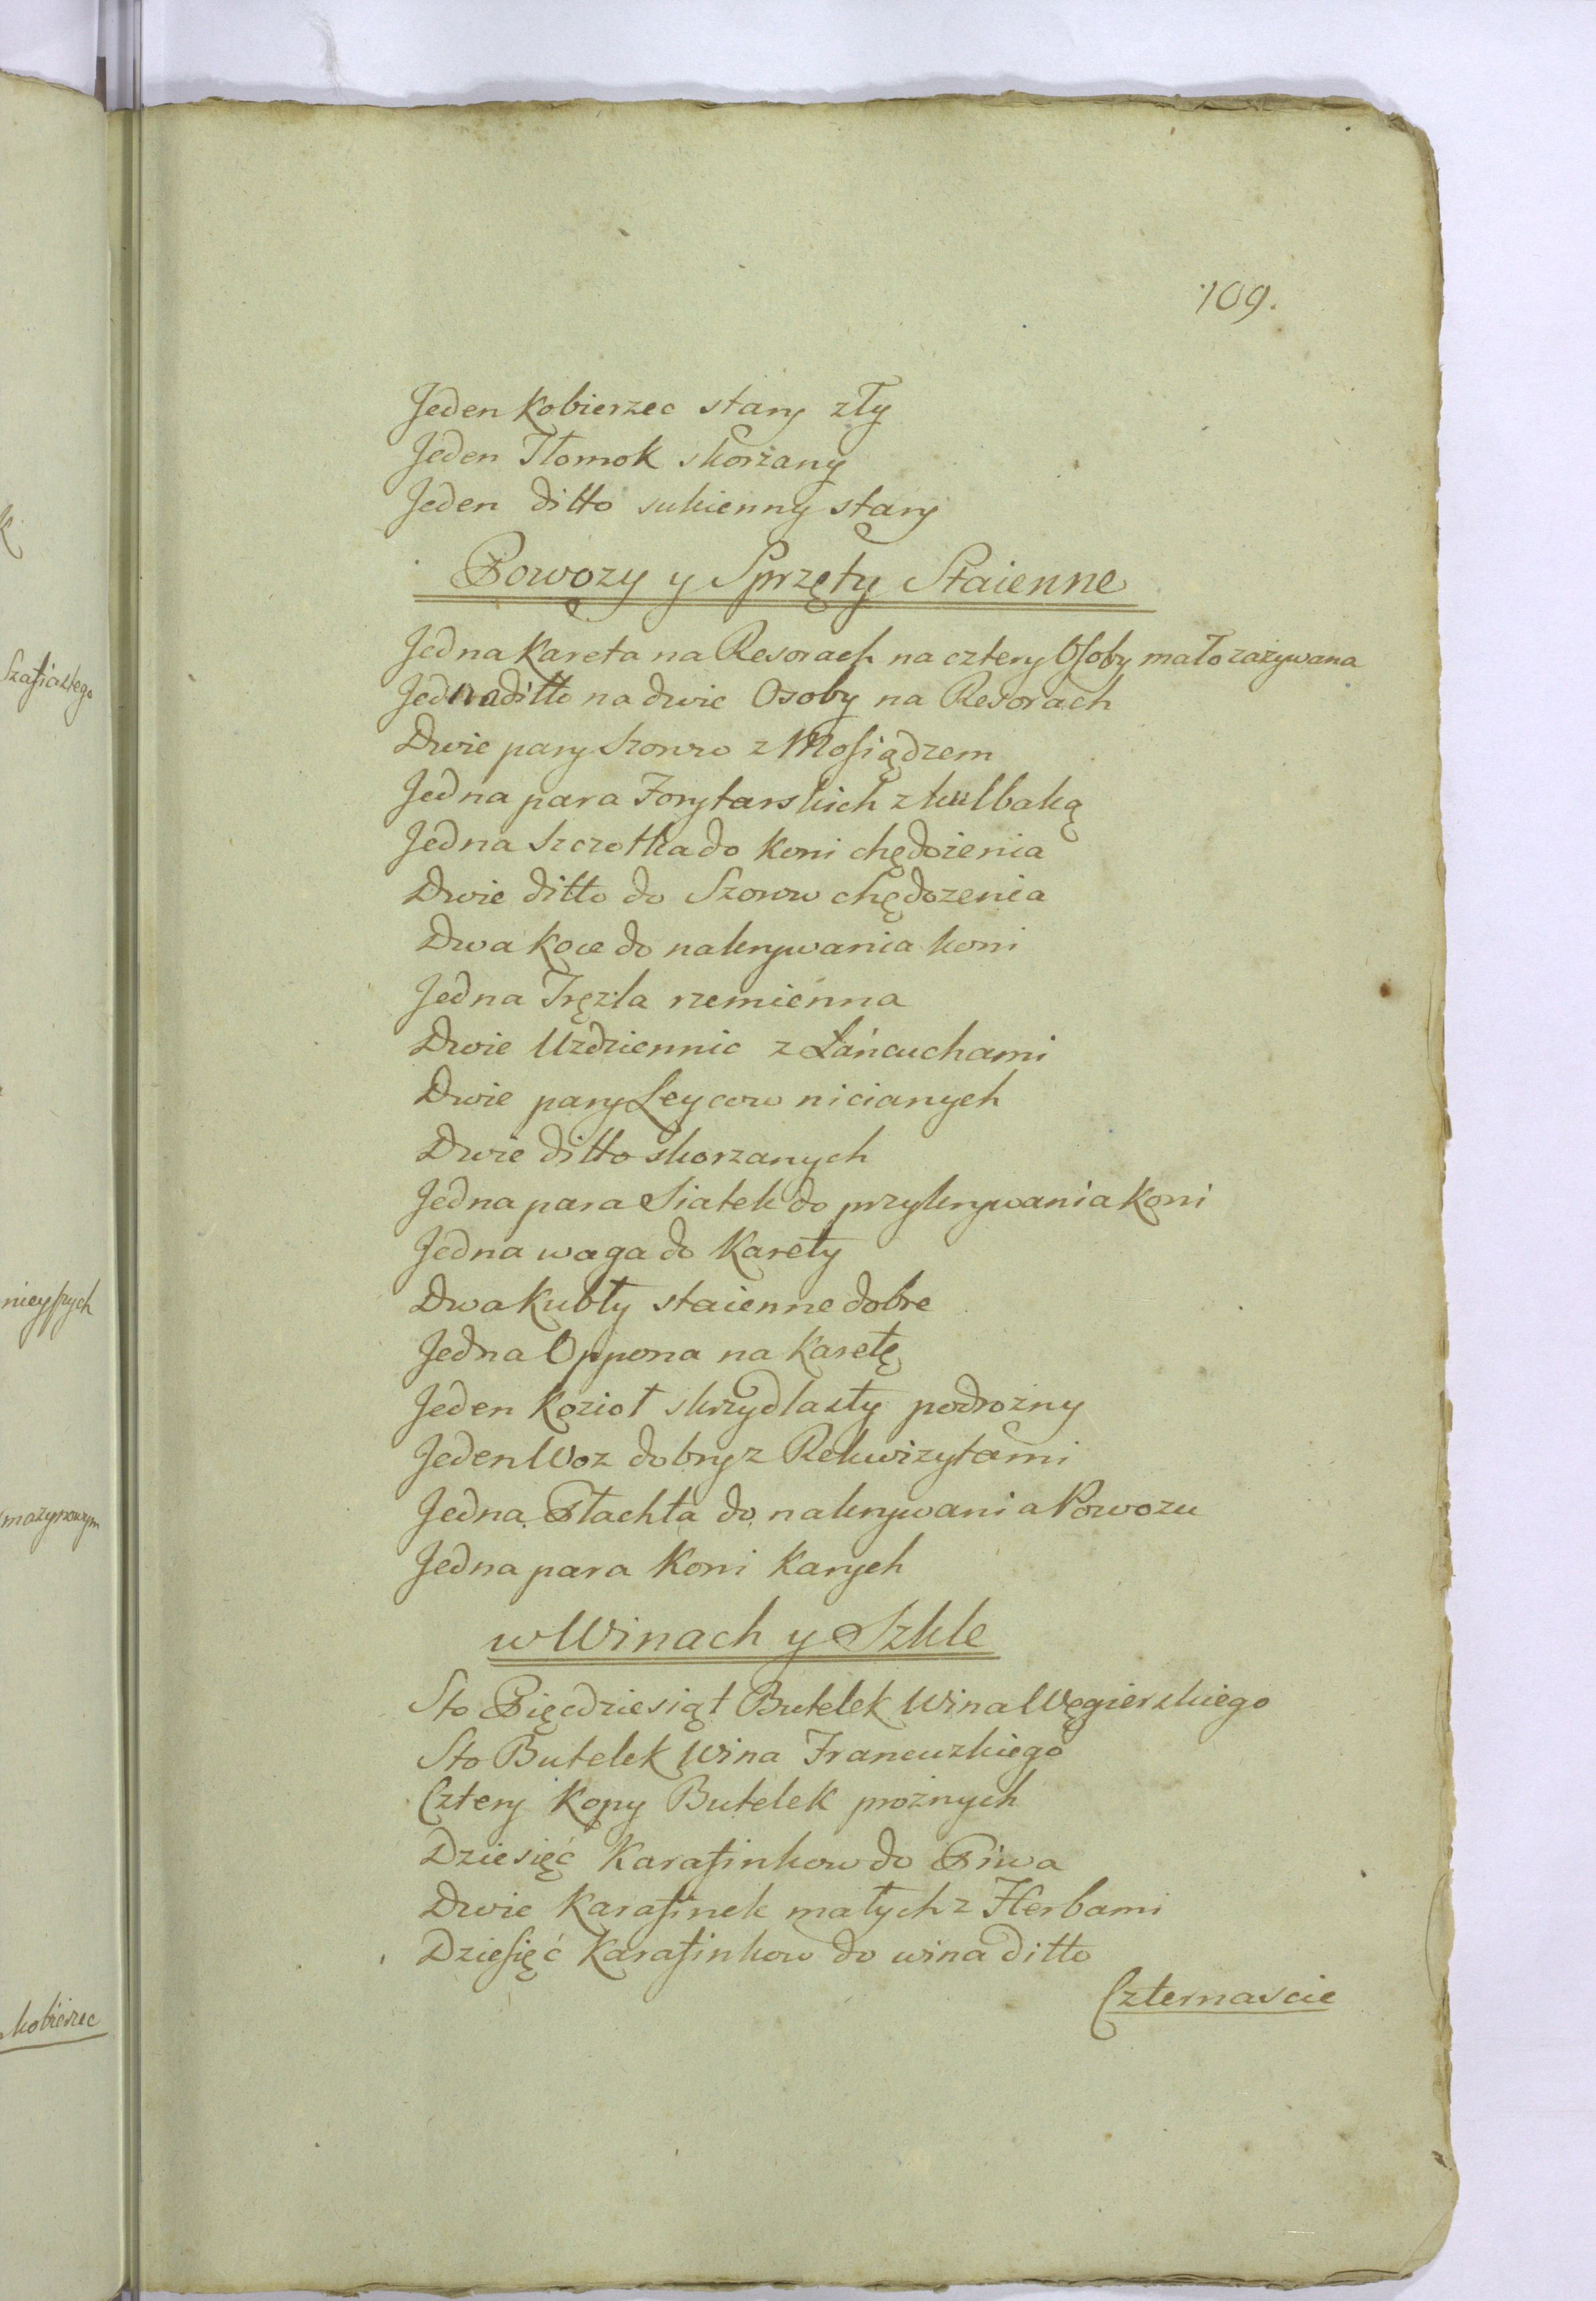 109.
Jeden kobierzec stary zły
Jeden Tłomok skorzany
Jeden ditto sukienny stary
Powozy y Sprzęty Staienne
Jedna Kareta na Resorach na cztery Osoby mało zażywana
Jedna ditto na dwie Osoby na Resorach
Dwie pary Szorow z Mosiądzem
Jedna para Forytarskich z kulbaką
Jedna Szczotka do Koni chędożenia
Dwie ditto do Szorow chędozenia
Dwa Koce do nakrywania koni
Jedna Tręzla rzemienna
Dwie Uzdziennic z Łańcuchami
Dwie pary Leycow nicianych
Dwie ditto skorzanych
Jedna para Siatek do przykrywania Koni
Jedna waga do Karety
Dwa Kubły staienne dobre
Jedna Oppona na Karetę
Jeden Kozioł skrzydlasty podrozny
Jeden Woz dobry z Rekwizytami
Jedna Płachta do nakrywania Powozu
Jedna para Koni Karych
w Winach y Szkle
Sto Pięcdziesiąt Butelek Wina Węgierskiego
Sto Butelek Wina Francuzkiego
Cztery Kopy Butelek prożnych
Dziesięć Karafinkow do Piwa
Dwie Karafinek małych z Herbami
Dziesięć Karafinkow do wina ditto
Czternascie
Szafiastego
nieyszych
kobierzec